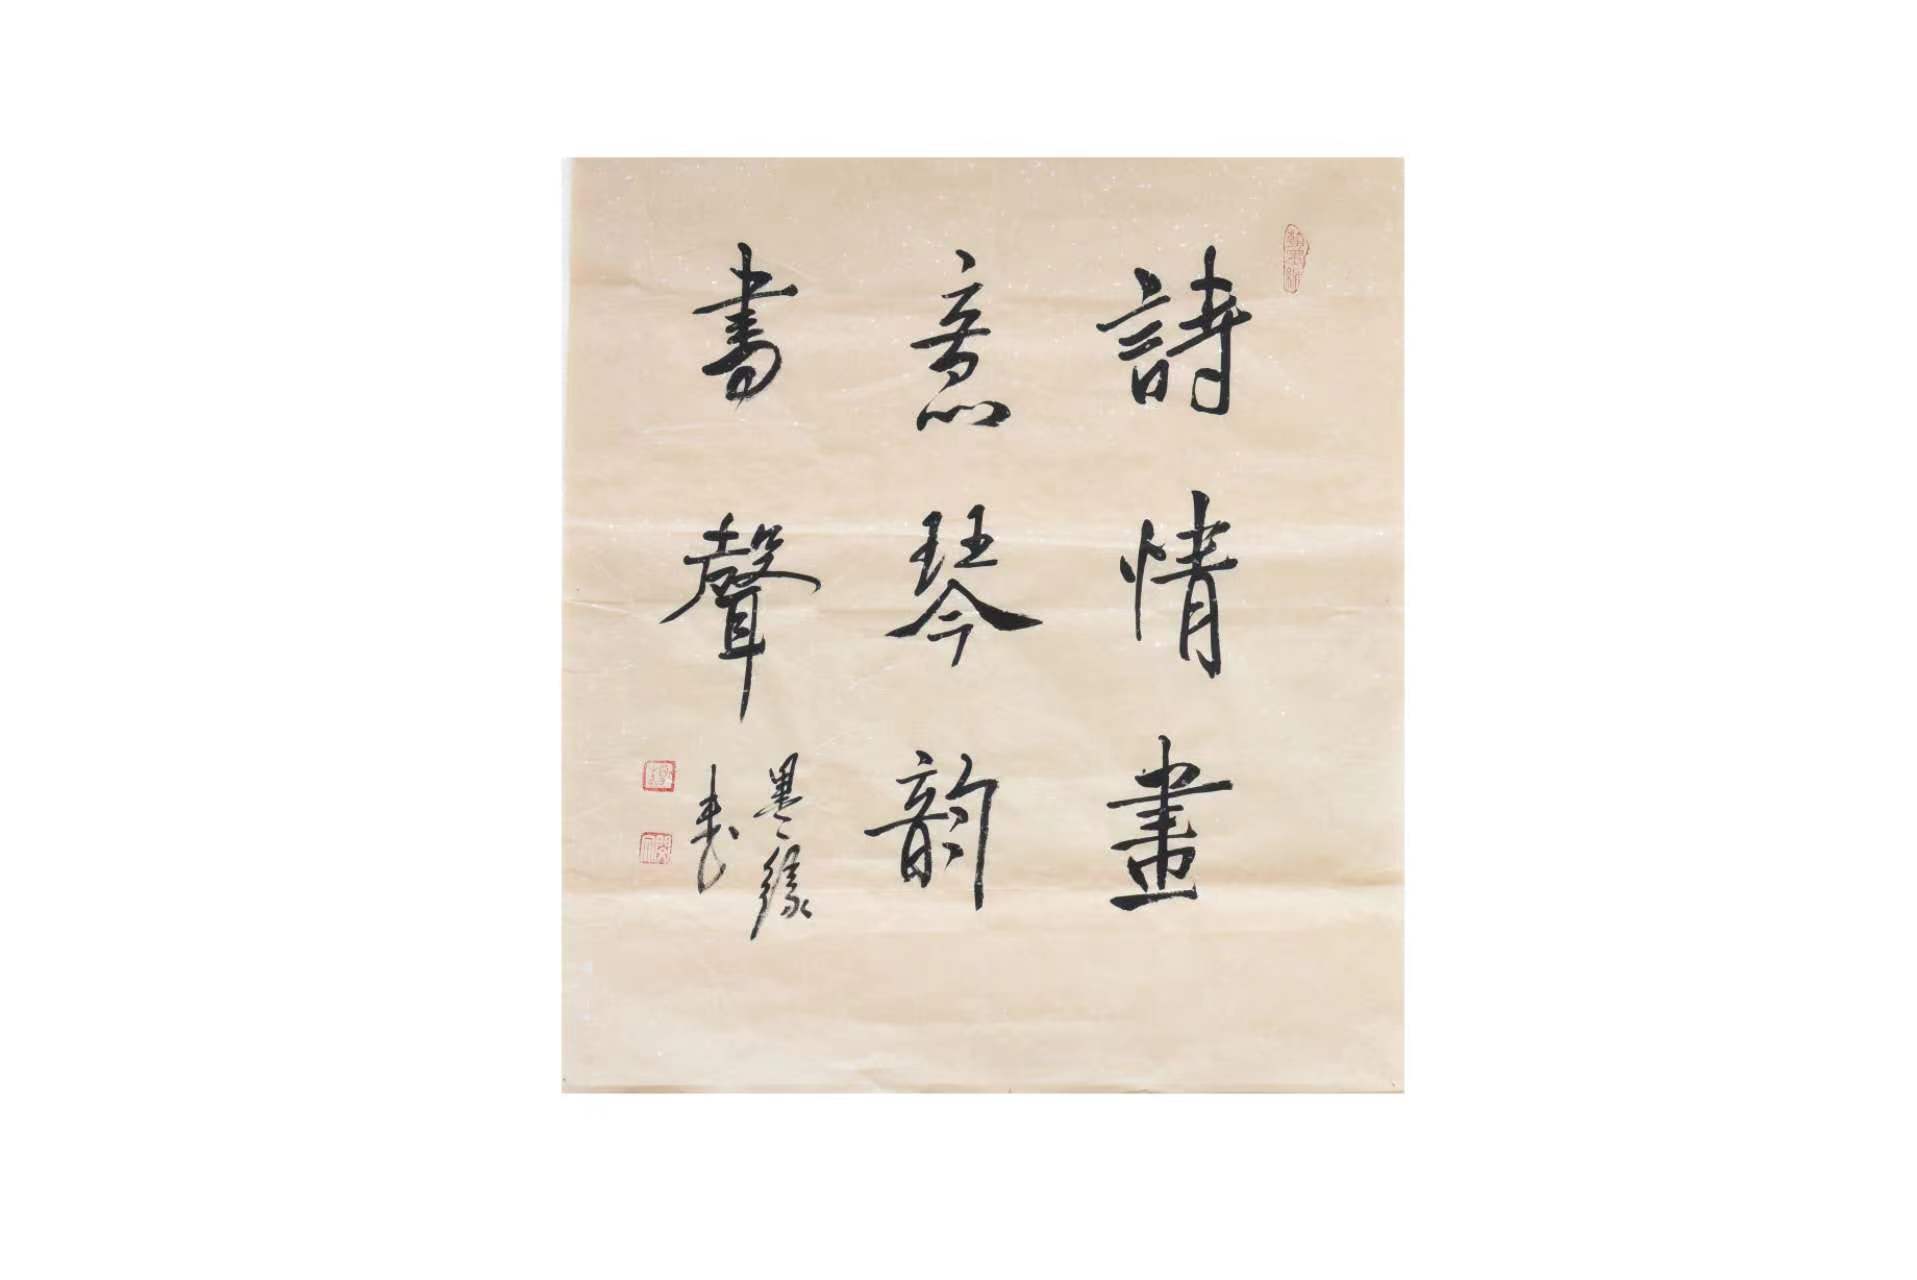 詩情畫
意琴韵
書聲
墨緣